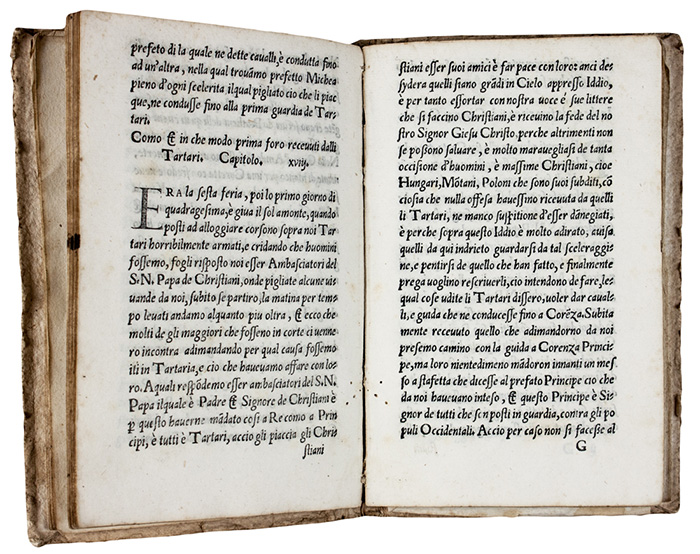 prefeto di la quale ne dette caualli, è condutta fino
ad un'altra, nella qual trouāmo prefetto Michea
pieno d'ogni scelerita ilqual pigliato cio che li piac
que, ne condusse fino alla prima guardia de Tar
tari.
Como & in che modo prima foro receuuti dalli
Tartari. Capitolo. xviij.
ERA la sesta feria, poi lo primo giorno di
quadragesima, è giua il sol amonte, quando
posti ad alloggiare corsono sopra noi Tar
tari horribilmente armati, e cridando che huomini
fossemo, fogli risposto noi esser Ambasciatori del
S. N. Papa de Christiani, onde pigliate alcune ui
uande da noi, subito se partiro, la matina per tem
po leuati andamo alquanto piu oltra, & ecco che
molti de gli maggiori che fosseno in corte ci uenne
ro incontra adimandando per qual causa fossemo
iti in Tartaria, e cio che haueuamo affare con lo
ro. A quali respōdemo esser ambasciatori del S. N.
Papa ilquale è Padre & Signore de Christiani è
ꝑ questo hauerne mādato cosi a Re como a Prin
cipi, è tutti è Tartari, accio gli piaccia gli Chris
stiani
stiani esser suoi amici è far pace con loro: anci des
sydera quelli siano grādi in Cielo appresso Iddio,
è per tanto essortar con nostra uoce è sue littere
che si faccino Christiani, è riceuino la fede del no
stro Signor Giesu Christo, perche altrimenti non
se possono saluare, è molto marauegliasi de tanta
occisione d'huomini, è massime Christiani, cioe
Hungari, Mōtani, Poloni che sono suoi subditi, cō
ciosia che nulla offesa hauessino riceuuta da quel
li Tartari, ne manco suspitione d'esser dānegiati,
è perche sopra questo Iddio è molto adirato, auisa
quelli da qui indrieto guardarsi da tal sceleraggi
ne, e pentirsi de quello che han fatto, e finalmente
prega uoglino rescriuerli, cio intendono de fare, les
qual cose udite li Tartari dissero, uoler dar caual
li, e guida che ne conducesse fino a Corēza. Subita
mente receuuto quello che adimandorno da noi
presemo camino con la guida a Corenza Princis
pe, ma loro nientedimeno mādoron innanti un mes
so a staffetta che dicesse al prefato Principe cio che
da noi haueuano inteso, & questo Principe è Si
gnor de tutti che sen posti in guardia, contra gli po
puli Occidentali. Accio per caso non si facesse al
G